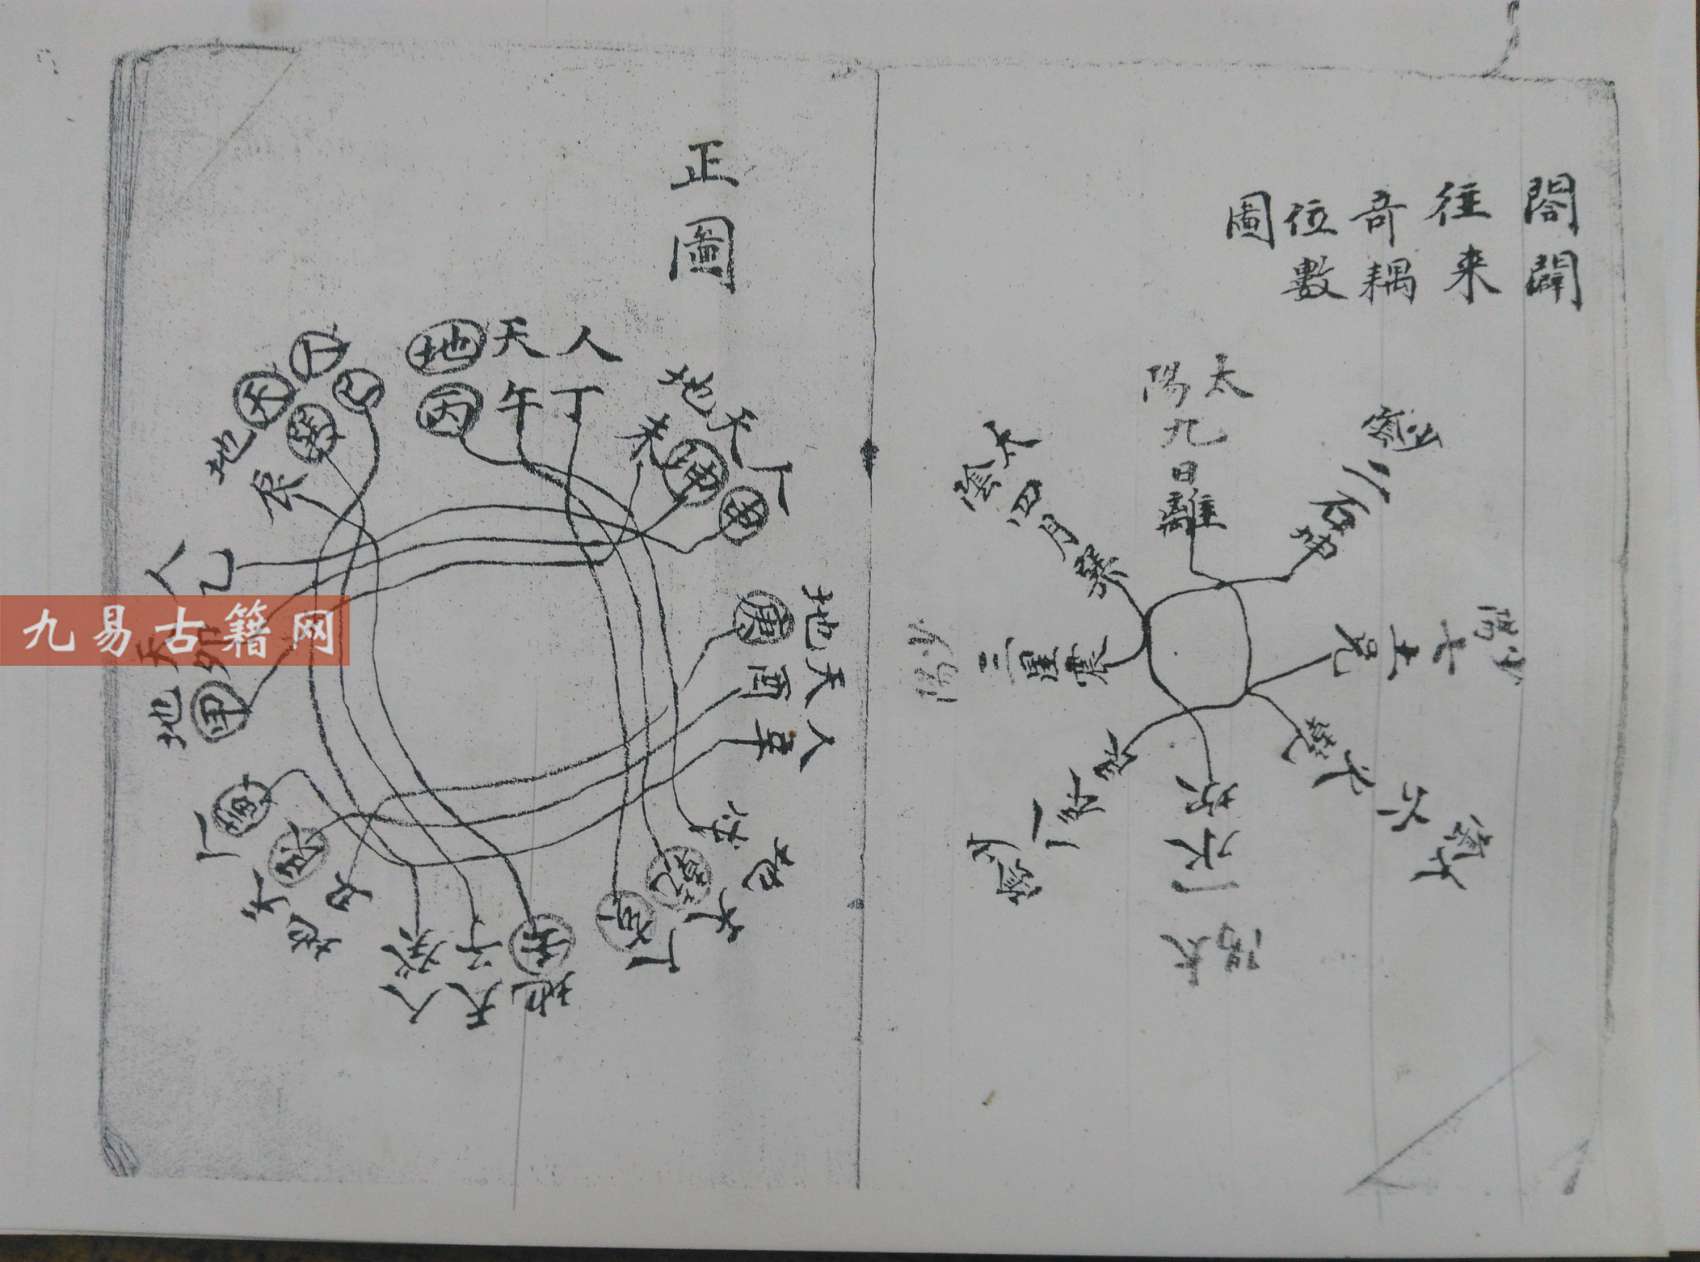 閤闢
往来
奇耦
位數
圖
太陽九日離
少陰二石坤
少陽七土兑
太陰六火乾
太陽一水坎
少陰
艮
少陽三星震
太陰四月巽
正圖
地天人
丙午丁
地天人
未坤申
地天人
庚酉辛
地天人
戌乾亥
地天人
壬子癸
地天人
丑艮寅
地天人
甲卯乙
地天人
辰巽巳
九易古籍网